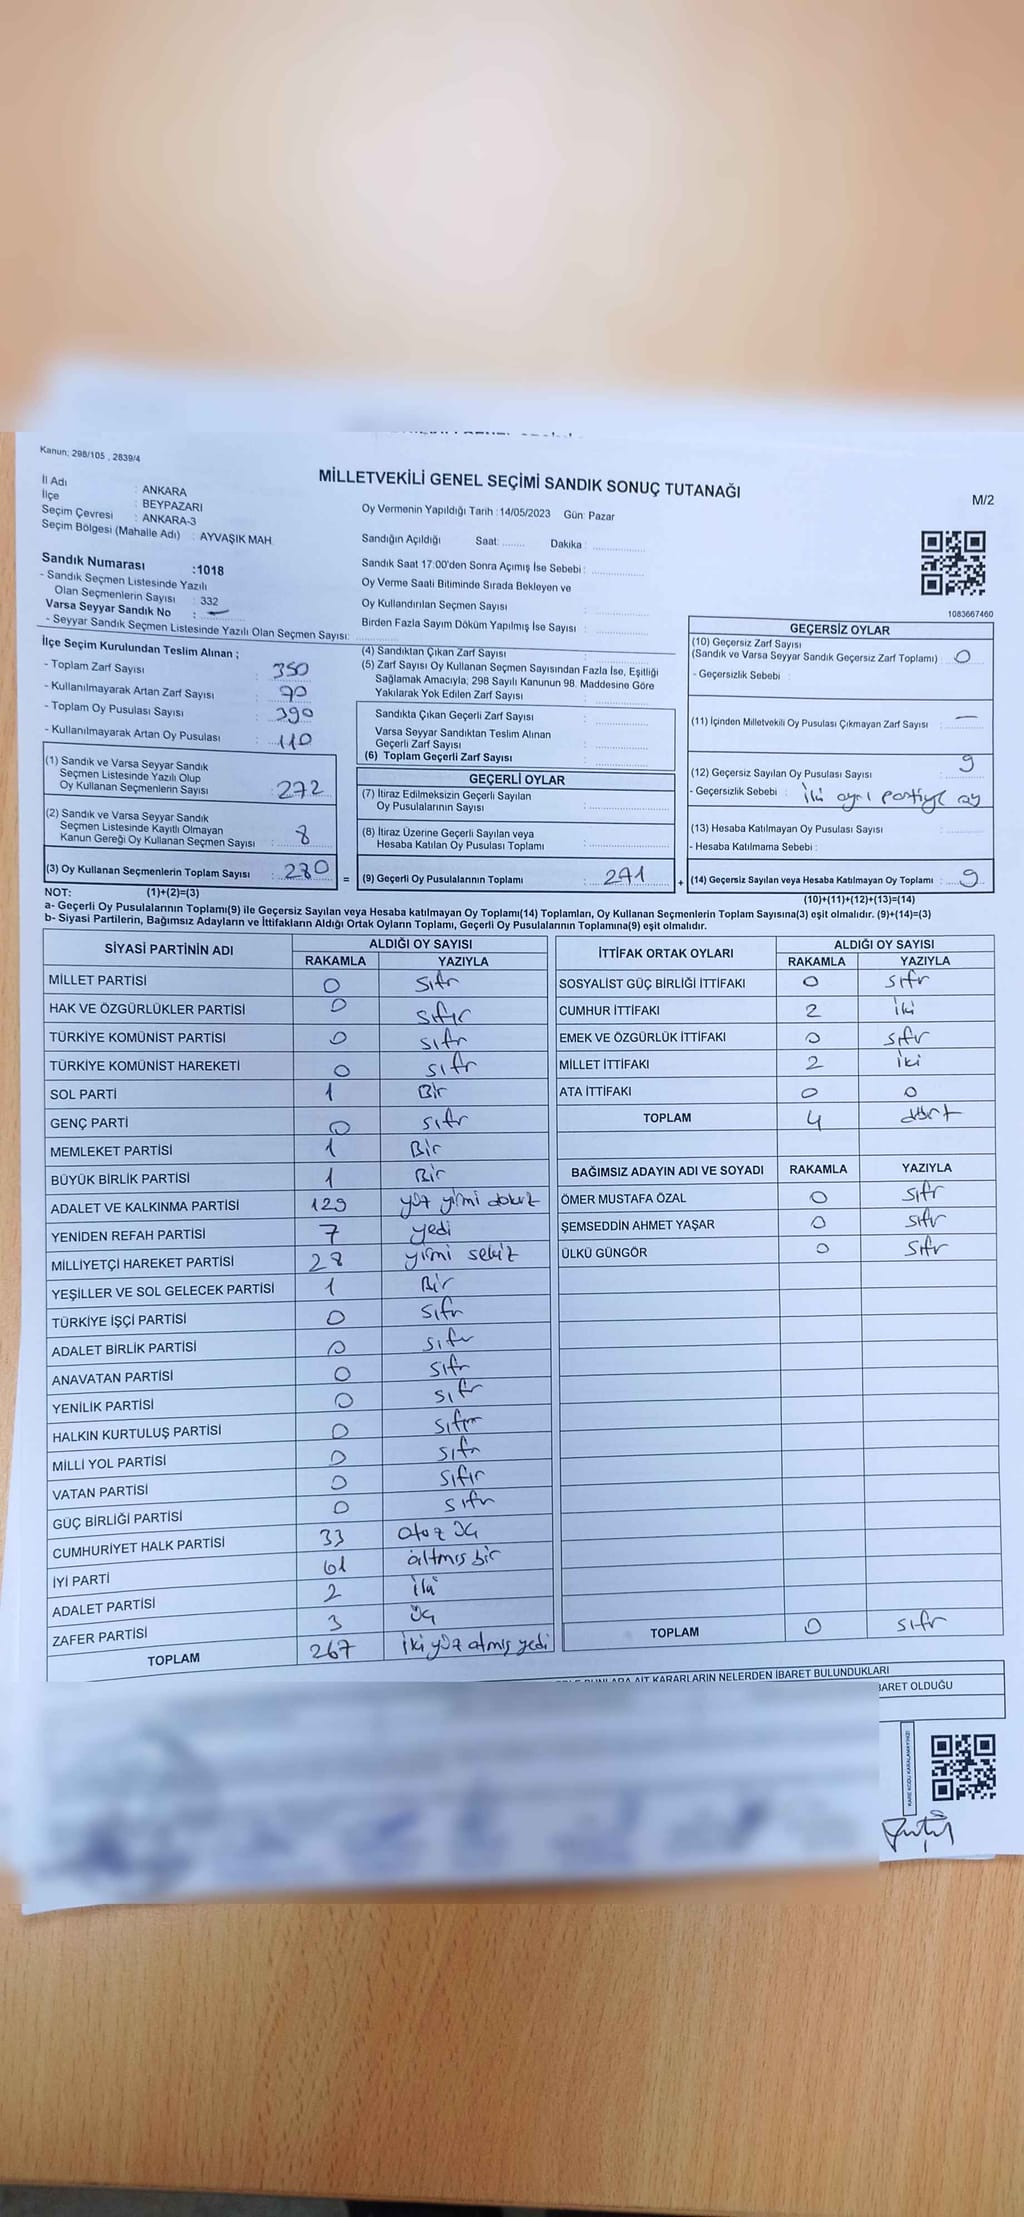 Kanun: 298/105 , 2839/4
MİLLETVEKİLİ GENEL SEÇİMİ SANDIK SONUÇ TUTANAĞI
M/2
İl Adı : ANKARA
İlçe : BEYPAZARI
Seçim Çevresi : ANKARA-3
Seçim Bölgesi (Mahalle Adı) : AYVAŞIK MAH.
Oy Vermenin Yapıldığı Tarih :14/05/2023 Gün: Pazar
Sandığın Açıldığı Saat: Dakika :
Sandık Saat 17:00'den Sonra Açımış İse Sebebi :
Oy Verme Saati Bitiminde Sırada Bekleyen ve
Oy Kullandırılan Seçmen Sayısı :
Birden Fazla Sayım Döküm Yapılmış İse Sayısı :
Sandık Numarası :1018
- Sandık Seçmen Listesinde Yazılı
Olan Seçmenlerin Sayısı : 332
Varsa Seyyar Sandık No : —
- Seyyar Sandık Seçmen Listesinde Yazılı Olan Seçmen Sayısı:
1083667460
İlçe Seçim Kurulundan Teslim Alınan ;
- Toplam Zarf Sayısı : 350
- Kullanılmayarak Artan Zarf Sayısı : 70
- Toplam Oy Pusulası Sayısı : 390
- Kullanılmayarak Artan Oy Pusulası : 110
(1) Sandık ve Varsa Seyyar Sandık
Seçmen Listesinde Yazılı Olup
Oy Kullanan Seçmenlerin Sayısı : 272
(2) Sandık ve Varsa Seyyar Sandık
Seçmen Listesinde Kayıtlı Olmayan
Kanun Gereği Oy Kullanan Seçmen Sayısı : 8
(3) Oy Kullanan Seçmenlerin Toplam Sayısı : 280 =
(4) Sandıktan Çıkan Zarf Sayısı :
(5) Zarf Sayısı Oy Kullanan Seçmen Sayısından Fazla İse, Eşitliği
Sağlamak Amacıyla, 298 Sayılı Kanunun 98. Maddesine Göre
Yakılarak Yok Edilen Zarf Sayısı :
Sandıkta Çıkan Geçerli Zarf Sayısı :
Varsa Seyyar Sandıktan Teslim Alınan
Geçerli Zarf Sayısı :
(6) Toplam Geçerli Zarf Sayısı :
GEÇERLİ OYLAR
(7) İtiraz Edilmeksizin Geçerli Sayılan
Oy Pusulalarının Sayısı :
(8) İtiraz Üzerine Geçerli Sayılan veya
Hesaba Katılan Oy Pusulası Toplamı :
(9) Geçerli Oy Pusulalarının Toplamı : 271 +
GEÇERSİZ OYLAR
(10) Geçersiz Zarf Sayısı
(Sandık ve Varsa Seyyar Sandık Geçersiz Zarf Toplamı) : 0
- Geçersizlik Sebebi :
(11) İçinden Milletvekili Oy Pusulası Çıkmayan Zarf Sayısı : —
(12) Geçersiz Sayılan Oy Pusulası Sayısı : 9
- Geçersizlik Sebebi : iki ayrı partiye oy
(13) Hesaba Katılmayan Oy Pusulası Sayısı :
- Hesaba Katılmama Sebebi :
(14) Geçersiz Sayılan veya Hesaba Katılmayan Oy Toplamı : 9
NOT: (1)+(2)=(3) (10)+(11)+(12)+(13)=(14)
a- Geçerli Oy Pusulalarının Toplamı(9) ile Geçersiz Sayılan veya Hesaba katılmayan Oy Toplamı(14) Toplamları, Oy Kullanan Seçmenlerin Toplam Sayısına(3) eşit olmalıdır. (9)+(14)=(3)
b- Siyasi Partilerin, Bağımsız Adayların ve İttifakların Aldığı Ortak Oyların Toplamı, Geçerli Oy Pusulalarının Toplamına(9) eşit olmalıdır.
SİYASİ PARTİNİN ADI ALDIĞI OY SAYISI
RAKAMLA YAZIYLA
MİLLET PARTİSİ 0 sıfır
HAK VE ÖZGÜRLÜKLER PARTİSİ 0 sıfır
TÜRKİYE KOMÜNİST PARTİSİ 0 sıfır
TÜRKİYE KOMÜNİST HAREKETİ 0 sıfır
SOL PARTİ 1 Bir
GENÇ PARTİ 0 sıfır
MEMLEKET PARTİSİ 1 Bir
BÜYÜK BİRLİK PARTİSİ 1 Bir
ADALET VE KALKINMA PARTİSİ 129 yüz yirmi dokuz
YENİDEN REFAH PARTİSİ 7 yedi
MİLLİYETÇİ HAREKET PARTİSİ 28 yirmi sekiz
YEŞİLLER VE SOL GELECEK PARTİSİ 1 Bir
TÜRKİYE İŞÇİ PARTİSİ 0 sıfır
ADALET BİRLİK PARTİSİ 0 sıfır
ANAVATAN PARTİSİ 0 sıfır
YENİLİK PARTİSİ 0 sıfır
HALKIN KURTULUŞ PARTİSİ 0 sıfır
MİLLİ YOL PARTİSİ 0 sıfır
VATAN PARTİSİ 0 sıfır
GÜÇ BİRLİĞİ PARTİSİ 0 sıfır
CUMHURİYET HALK PARTİSİ 33 otuz üç
İYİ PARTİ 61 altmış bir
ADALET PARTİSİ 2 iki
ZAFER PARTİSİ 3 üç
TOPLAM 267 iki yüz atmış yedi
İTTİFAK ORTAK OYLARI ALDIĞI OY SAYISI
RAKAMLA YAZIYLA
SOSYALİST GÜÇ BİRLİĞİ İTTİFAKI 0 sıfır
CUMHUR İTTİFAKI 2 iki
EMEK VE ÖZGÜRLÜK İTTİFAKI 0 sıfır
MİLLET İTTİFAKI 2 iki
ATA İTTİFAKI 0 0
TOPLAM 4 dört
BAĞIMSIZ ADAYIN ADI VE SOYADI RAKAMLA YAZIYLA
ÖMER MUSTAFA ÖZAL 0 sıfır
ŞEMSEDDİN AHMET YAŞAR 0 sıfır
ÜLKÜ GÜNGÖR 0 sıfır
TOPLAM 0 sıfır
AİT KARARLARIN NELERDEN İBARET BULUNDUKLARI
OLDUĞU
KARE KODU KARALAMAYINIZ!